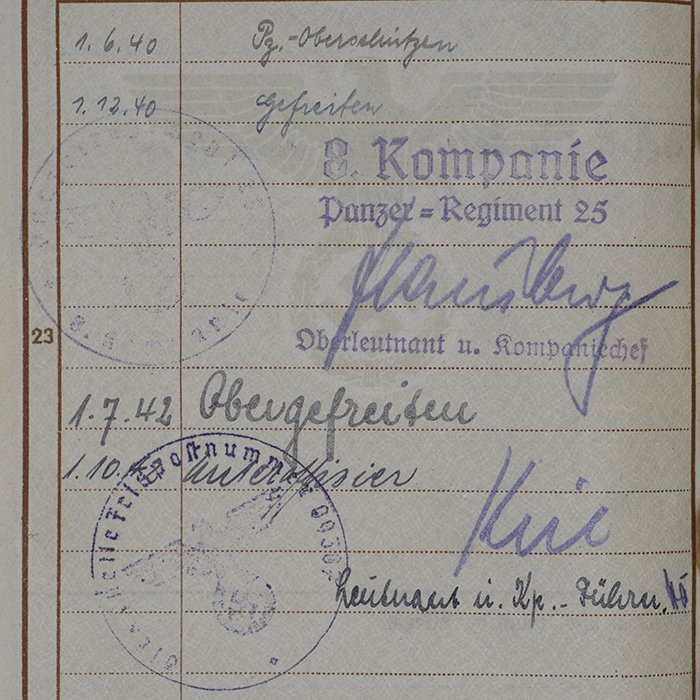 1.6.40 Pz.-Oberschützen
1.12.40 Gefreiten
8. Kompanie
Panzer=Regiment 25
Oberleutnant u. Kompaniechef
23
1.7.42 Obergefreiten
1.10. Unteroffizier
Feldpostnummer
Leutnant u. Kp.-Führer